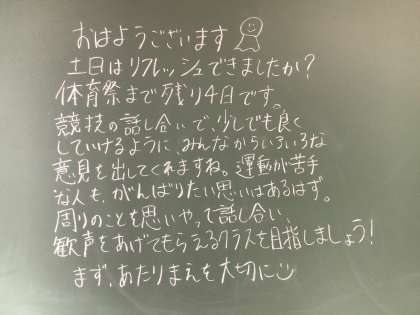 おはようございます
土日はリフレッシュできましたか?
体育祭まで残り4日です。
競技の話し合いで、少しでも良く
していけるように、みんながいろいろな
意見を出してくれますね。運動が苦手
な人も、がんばりたい思いはあるはず。
周りのことを思いやって話し合い、
歓声をあげてもらえるクラスを目指しましょう!
まず、あたりまえを大切に